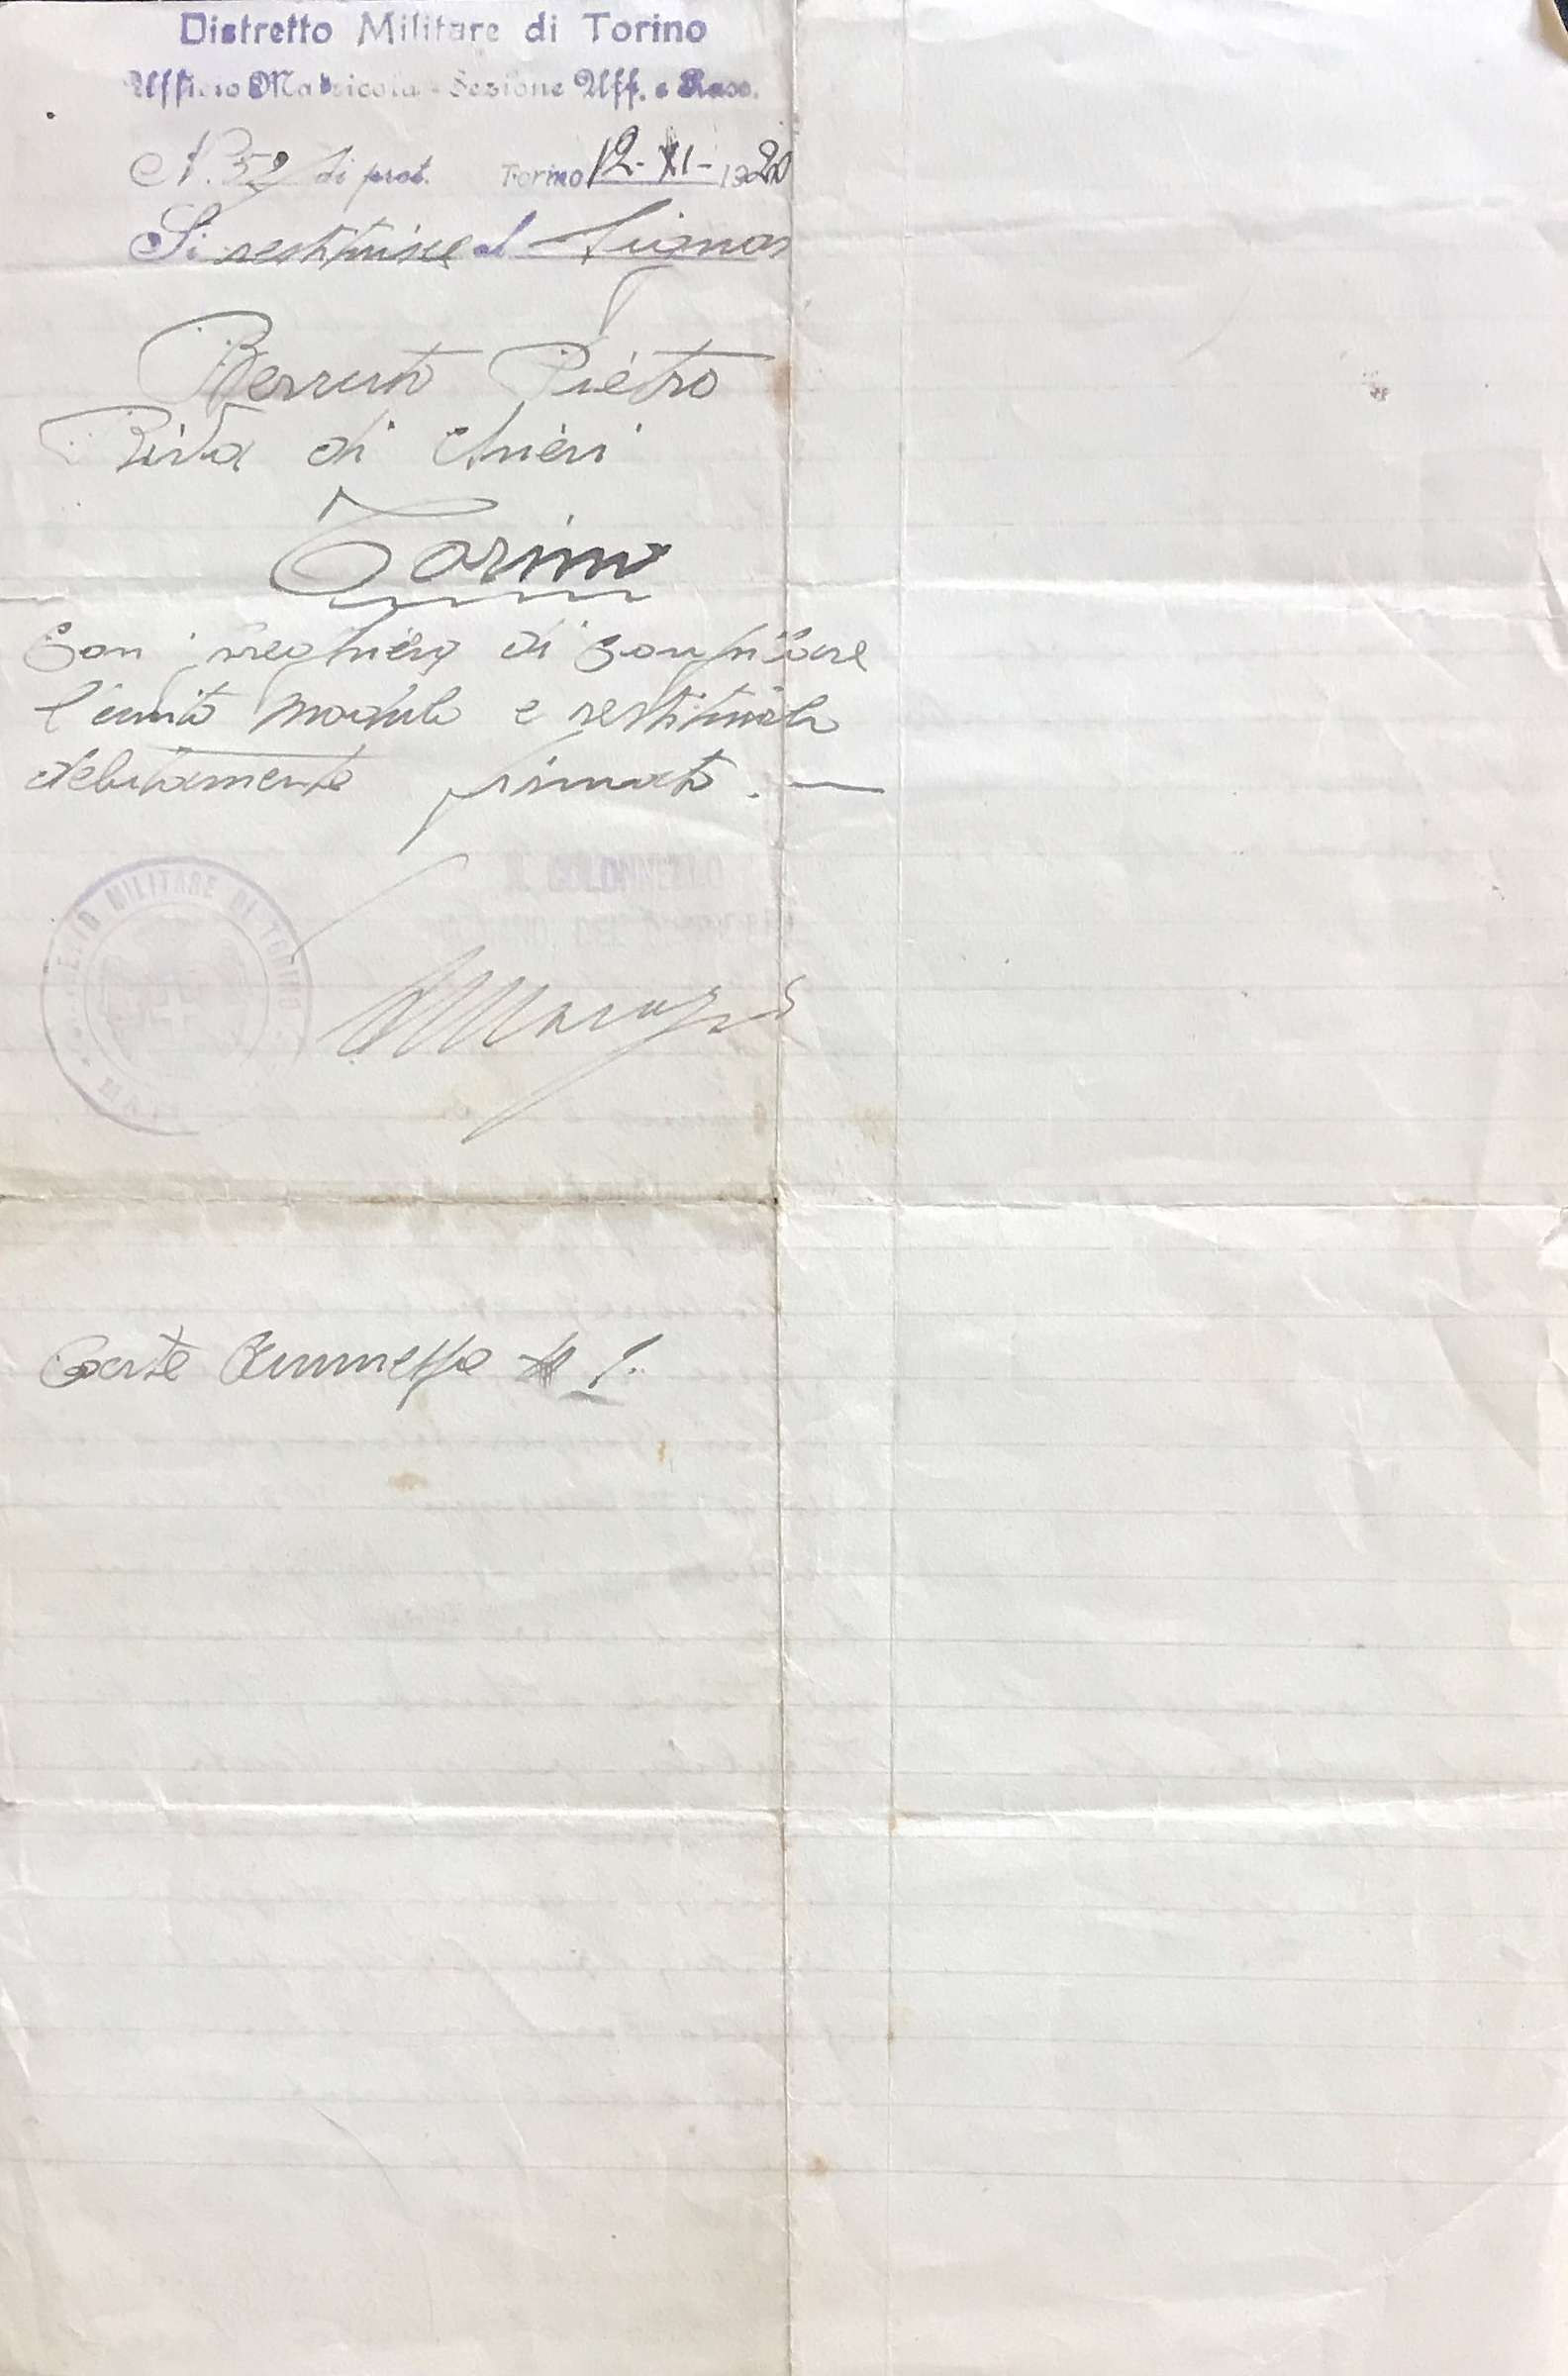 Distretto Militare di Torino
Ufficio Matricola - Sezione Uff. e Rass.
N. 52 di prot. Torino 12-XI-1920
Si restituisce al Signor
Berruto Pietro
Riva di Chieri
Torino
Con preghiera di compilare
l'unito modulo e restituirlo
debitamente firmato. —
IL COLONNELLO
MILITARE DI TORINO
Carte Ammesse N 1.